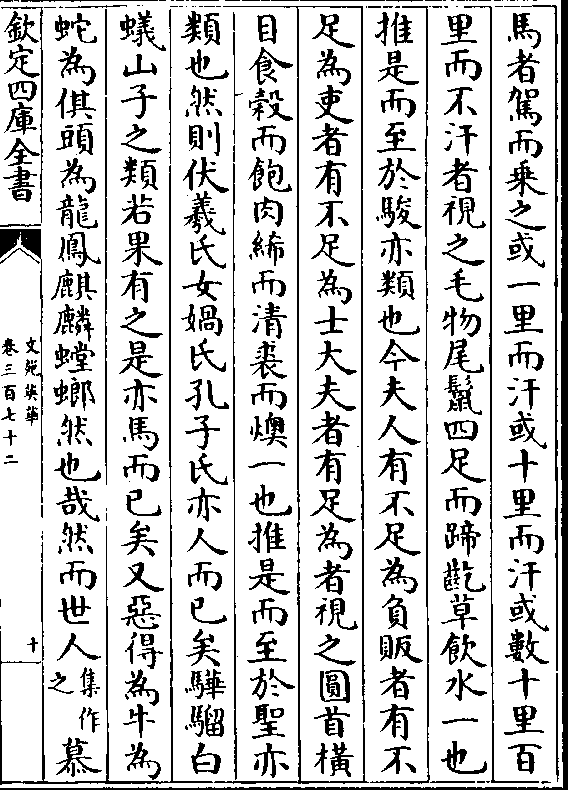 馬者駕而乗之或一里而汗或十里而汗或數十里百
里而不汗者視之毛物尾鬣四足而蹄齕草飲水一也
推是而至於駿亦類也今夫人有不足為負販者有不
足為吏者有不足為士大夫者有足為者視之圓首橫
目食榖而飽肉絺而清裘而燠一也推是而至於聖亦
類也然則伏羲氏女媧氏孔子氏亦人而已矣驊騮白
蟻山子之類若果有之是亦馬而已矣又惡得為牛為
蛇為倛頭為龍鳳麒麟螳螂然也哉然而世人集作之慕
欽定四庫全書
文苑英華
卷三百七十二
十